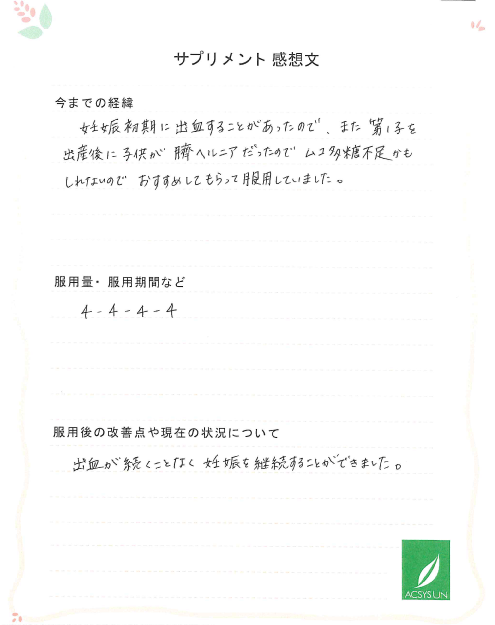 サプリメント 感想文
今までの経緯
妊娠初期に出血することがあったので、また第1子を
出産後に子供が臍ヘルニアだったのでムコ多糖不足かも
しれないのでおすすめしてもらって服用していました。
服用量・服用期間など
4-4-4-4
服用後の改善点や現在の状況について
出血が続くことなく妊娠を継続することができました。
ACSYSUN